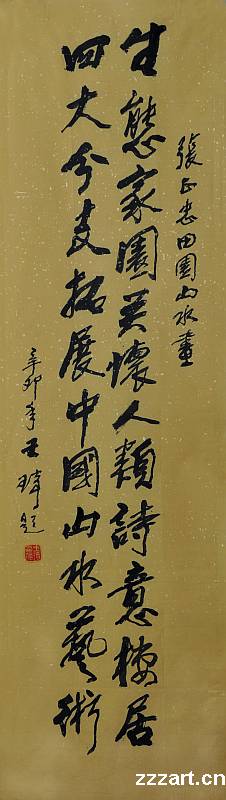 張正忠田園山水畫
生態家園关懷人類詩意棲居
四大分支拓展中國山水藝術
辛卯年王題
zzzart.cn